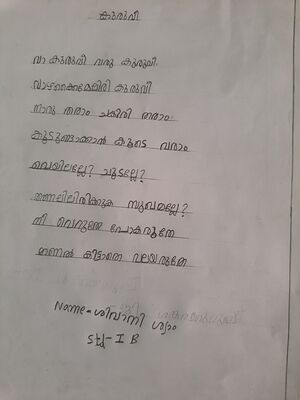 കുരുവി
വാ കുരുവി വരു കുരുവി
വാഴക്കൈമേലിരി കുരുവി
നാരു തരാം ചകിരി തരാം
കൂടുണ്ടാക്കാൻ കൂടെ വരാം
വെയിലല്ലേ? ചൂടല്ലേ?
തണലിലിരിക്കുക സുഖമല്ലേ?
നീ വെറുതേ പോകരുതേ
തണൽ കിട്ടാതെ വലയരുതേ
Name = ശിവാനി ശ്യാം
Std - I B